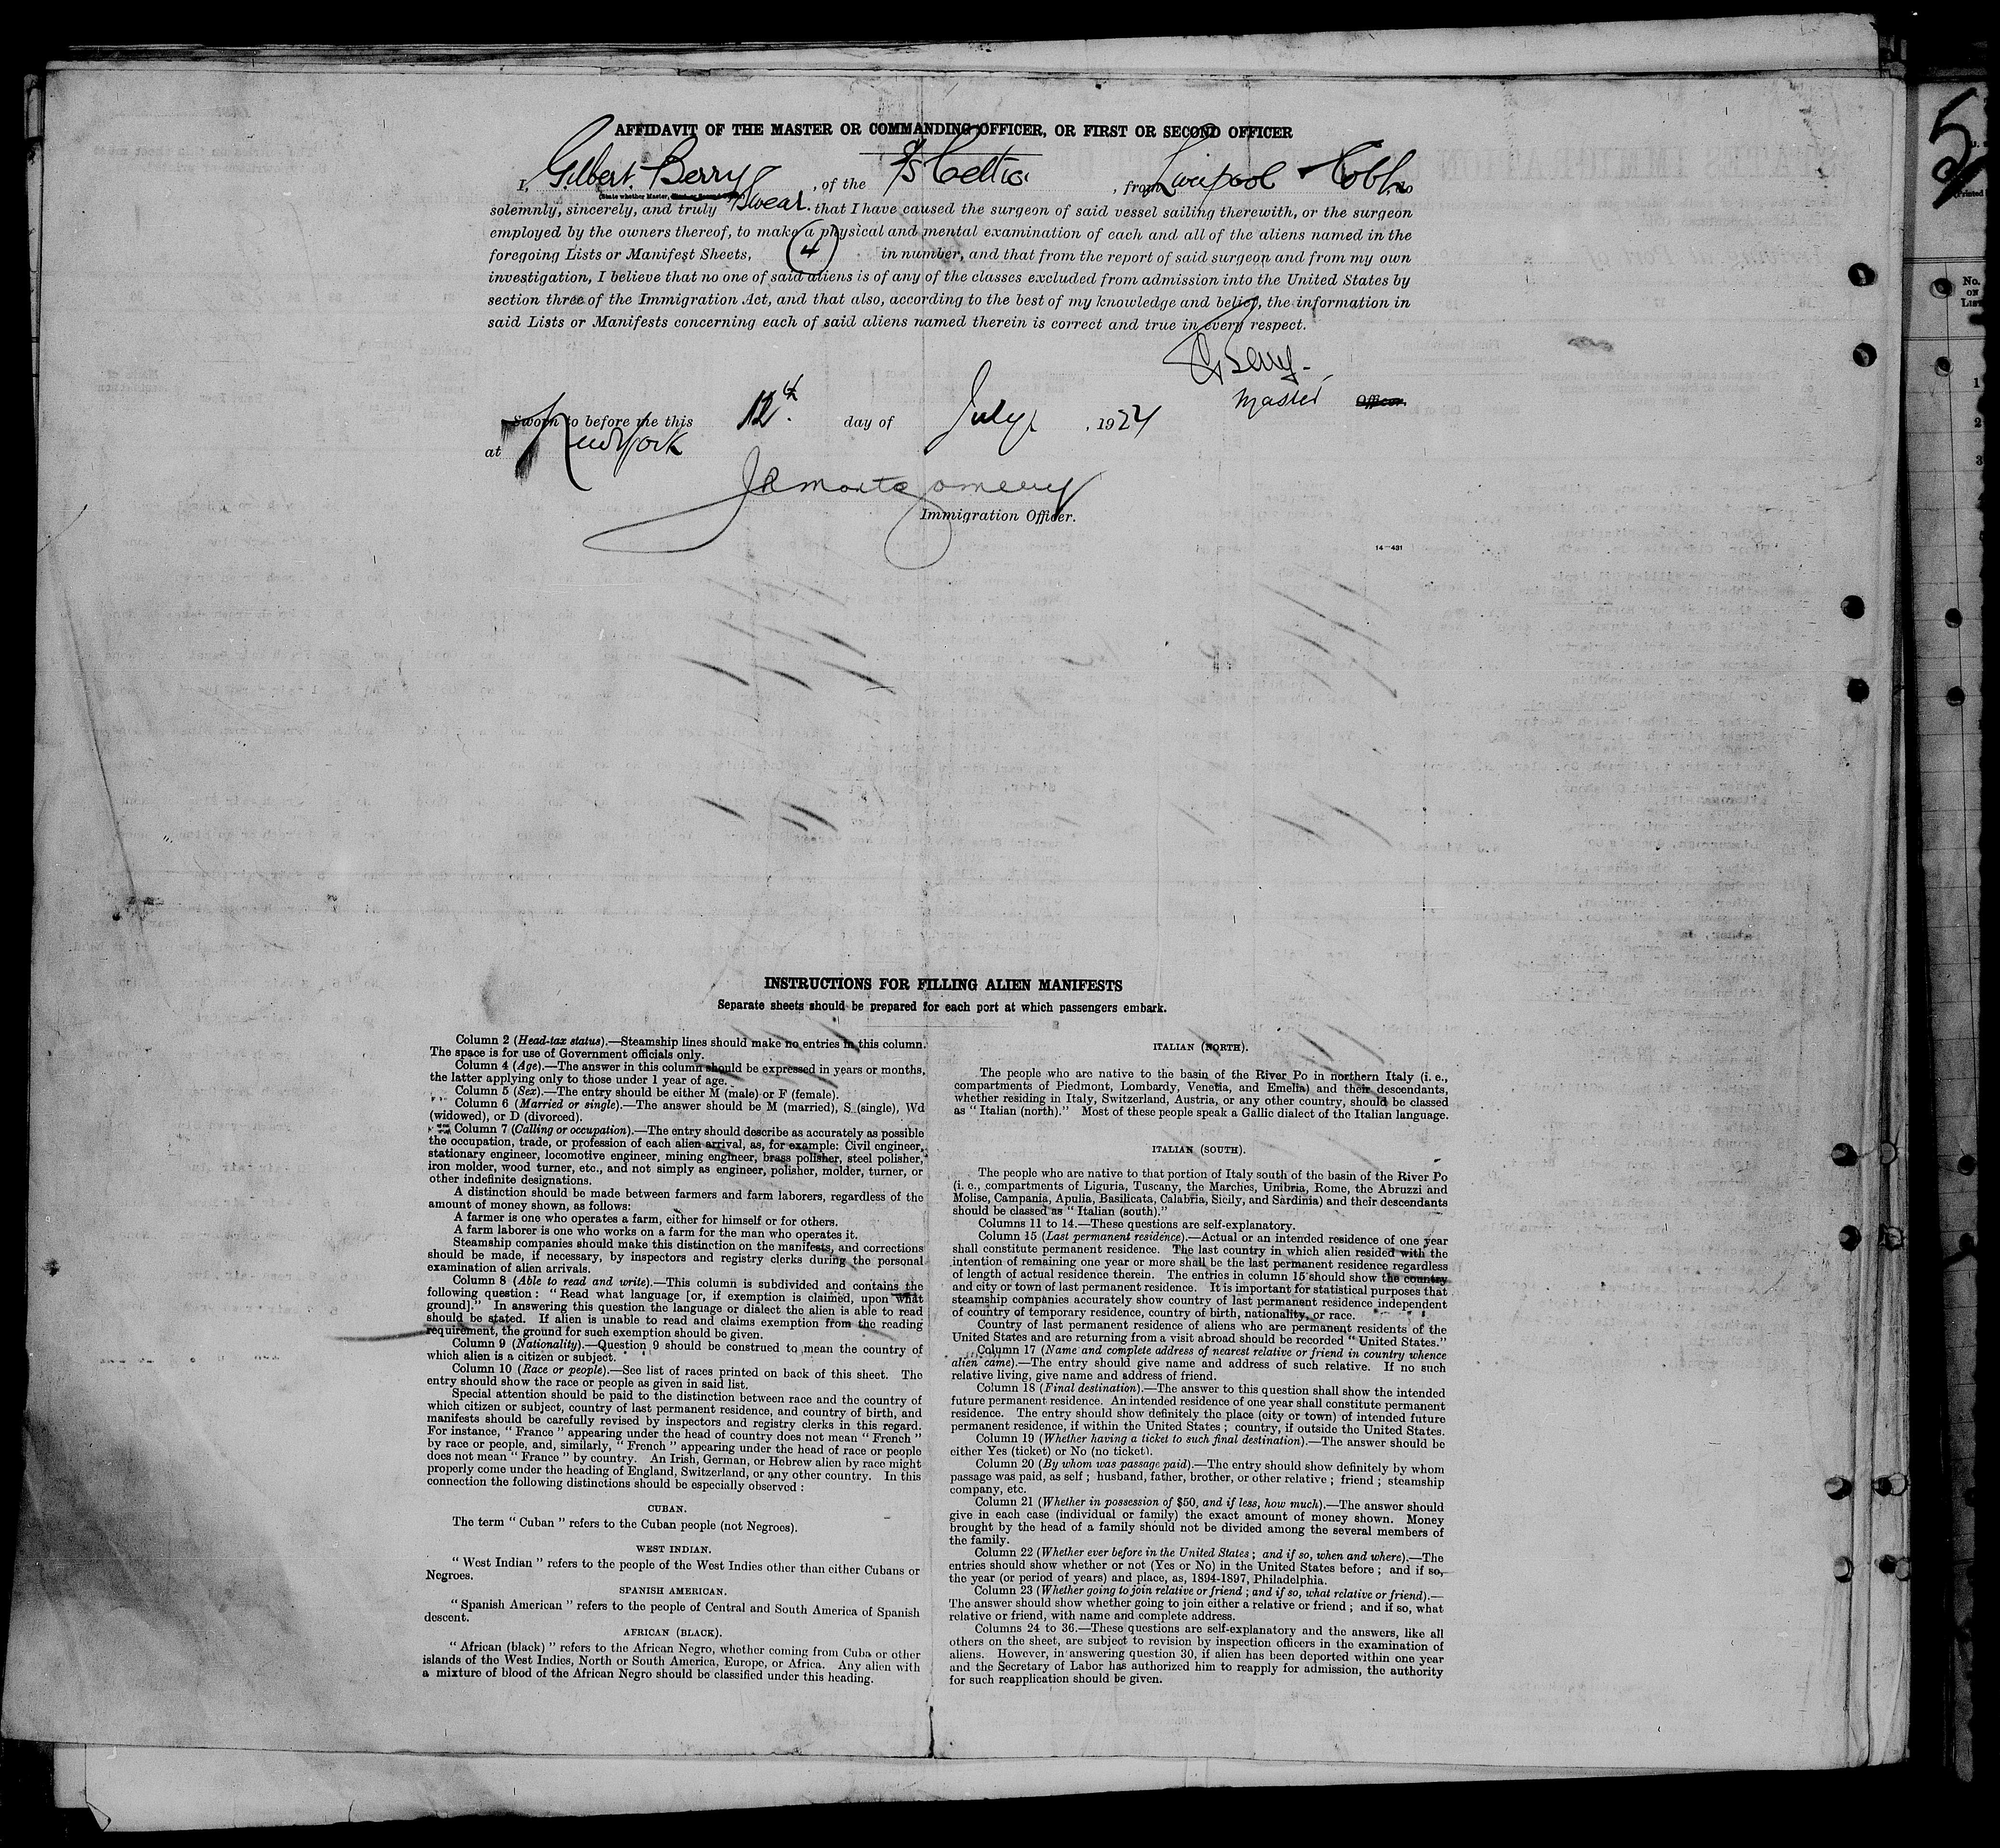 AFFIDAVIT OF THE MASTER OR COMMANDING OFFICER, OR FIRST OR SECOND OFFICER
I, Gilbert Berry, of the S/S Celtic, from Liverpool Cobh, do
(State whether Master, First or Second Officer)
solemnly, sincerely, and truly Swear that I have caused the surgeon of said vessel sailing therewith, or the surgeon
employed by the owners thereof, to make a physical and mental examination of each and all of the aliens named in the
foregoing Lists or Manifest Sheets, 4 in number, and that from the report of said surgeon and from my own
investigation, I believe that no one of said aliens is of any of the classes excluded from admission into the United States by
section three of the Immigration Act, and that also, according to the best of my knowledge and belief, the information in
said Lists or Manifests concerning each of said aliens named therein is correct and true in every respect.
G Berry
Master Officer.
Sworn to before me this 12th day of July, 1924
at New York
J R Montgomery
Immigration Officer.
14—431
INSTRUCTIONS FOR FILLING ALIEN MANIFESTS
Separate sheets should be prepared for each port at which passengers embark.
Column 2 (Head-tax status).—Steamship lines should make no entries in this column.
The space is for use of Government officials only.
Column 4 (Age).—The answer in this column should be expressed in years or months,
the latter applying only to those under 1 year of age.
Column 5 (Sex).—The entry should be either M (male) or F (female).
Column 6 (Married or single).—The answer should be M (married), S (single), Wd
(widowed), or D (divorced).
Column 7 (Calling or occupation).—The entry should describe as accurately as possible
the occupation, trade, or profession of each alien arrival, as, for example: Civil engineer,
stationary engineer, locomotive engineer, mining engineer, brass polisher, steel polisher,
iron molder, wood turner, etc., and not simply as engineer, polisher, molder, turner, or
other indefinite designations.
A distinction should be made between farmers and farm laborers, regardless of the
amount of money shown, as follows:
A farmer is one who operates a farm, either for himself or for others.
A farm laborer is one who works on a farm for the man who operates it.
Steamship companies should make this distinction on the manifests, and corrections
should be made, if necessary, by inspectors and registry clerks during the personal
examination of alien arrivals.
Column 8 (Able to read and write).—This column is subdivided and contains the
following question: “Read what language [or, if exemption is claimed, upon what
ground].” In answering this question the language or dialect the alien is able to read
should be stated. If alien is unable to read and claims exemption from the reading
requirement, the ground for such exemption should be given.
Column 9 (Nationality).—Question 9 should be construed to mean the country of
which alien is a citizen or subject.
Column 10 (Race or people).—See list of races printed on back of this sheet. The
entry should show the race or people as given in said list.
Special attention should be paid to the distinction between race and the country of
which citizen or subject, country of last permanent residence, and country of birth, and
manifests should be carefully revised by inspectors and registry clerks in this regard.
For instance, “France” appearing under the head of country does not mean “French”
by race or people, and, similarly, “French” appearing under the head of race or people
does not mean “France” by country. An Irish, German, or Hebrew alien by race might
properly come under the heading of England, Switzerland, or any other country. In this
connection the following distinctions should be especially observed:
CUBAN.
The term “Cuban” refers to the Cuban people (not Negroes).
WEST INDIAN.
“West Indian” refers to the people of the West Indies other than either Cubans or
Negroes.
SPANISH AMERICAN.
“Spanish American” refers to the people of Central and South America of Spanish
descent.
AFRICAN (BLACK).
“African (black)” refers to the African Negro, whether coming from Cuba or other
islands of the West Indies, North or South America, Europe, or Africa. Any alien with
a mixture of blood of the African Negro should be classified under this heading.
ITALIAN (NORTH).
The people who are native to the basin of the River Po in northern Italy (i. e.,
compartments of Piedmont, Lombardy, Venetia, and Emelia) and their descendants,
whether residing in Italy, Switzerland, Austria, or any other country, should be classed
as “Italian (north).” Most of these people speak a Gallic dialect of the Italian language.
ITALIAN (SOUTH).
The people who are native to that portion of Italy south of the basin of the River Po
(i. e., compartments of Liguria, Tuscany, the Marches, Umbria, Rome, the Abruzzi and
Molise, Campania, Apulia, Basilicata, Calabria, Sicily, and Sardinia) and their descendants
should be classed as “Italian (south).”
Columns 11 to 14.—These questions are self-explanatory.
Column 15 (Last permanent residence).—Actual or an intended residence of one year
shall constitute permanent residence. The last country in which alien resided with the
intention of remaining one year or more shall be the last permanent residence regardless
of length of actual residence therein. The entries in column 15 should show the country
and city or town of last permanent residence. It is important for statistical purposes that
steamship companies accurately show country of last permanent residence independent
of country of temporary residence, country of birth, nationality, or race.
Country of last permanent residence of aliens who are permanent residents of the
United States and are returning from a visit abroad should be recorded “United States.”
Column 17 (Name and complete address of nearest relative or friend in country whence
alien came).—The entry should give name and address of such relative. If no such
relative living, give name and address of friend.
Column 18 (Final destination).—The answer to this question shall show the intended
future permanent residence. An intended residence of one year shall constitute permanent
residence. The entry should show definitely the place (city or town) of intended future
permanent residence, if within the United States; country, if outside the United States.
Column 19 (Whether having a ticket to such final destination).—The answer should be
either Yes (ticket) or No (no ticket).
Column 20 (By whom was passage paid).—The entry should show definitely by whom
passage was paid, as self; husband, father, brother, or other relative; friend; steamship
company, etc.
Column 21 (Whether in possession of $50, and if less, how much).—The answer should
give in each case (individual or family) the exact amount of money shown. Money
brought by the head of a family should not be divided among the several members of
the family.
Column 22 (Whether ever before in the United States; and if so, when and where).—The
entries should show whether or not (Yes or No) in the United States before; and if so,
the year (or period of years) and place, as, 1894-1897, Philadelphia.
Column 23 (Whether going to join relative or friend; and if so, what relative or friend).—
The answer should show whether going to join either a relative or friend; and if so, what
relative or friend, with name and complete address.
Columns 24 to 36.—These questions are self-explanatory and the answers, like all
others on the sheet, are subject to revision by inspection officers in the examination of
aliens. However, in answering question 30, if alien has been deported within one year
and the Secretary of Labor has authorized him to reapply for admission, the authority
for such reapplication should be given.
No.
ON
LIST
1
2
3